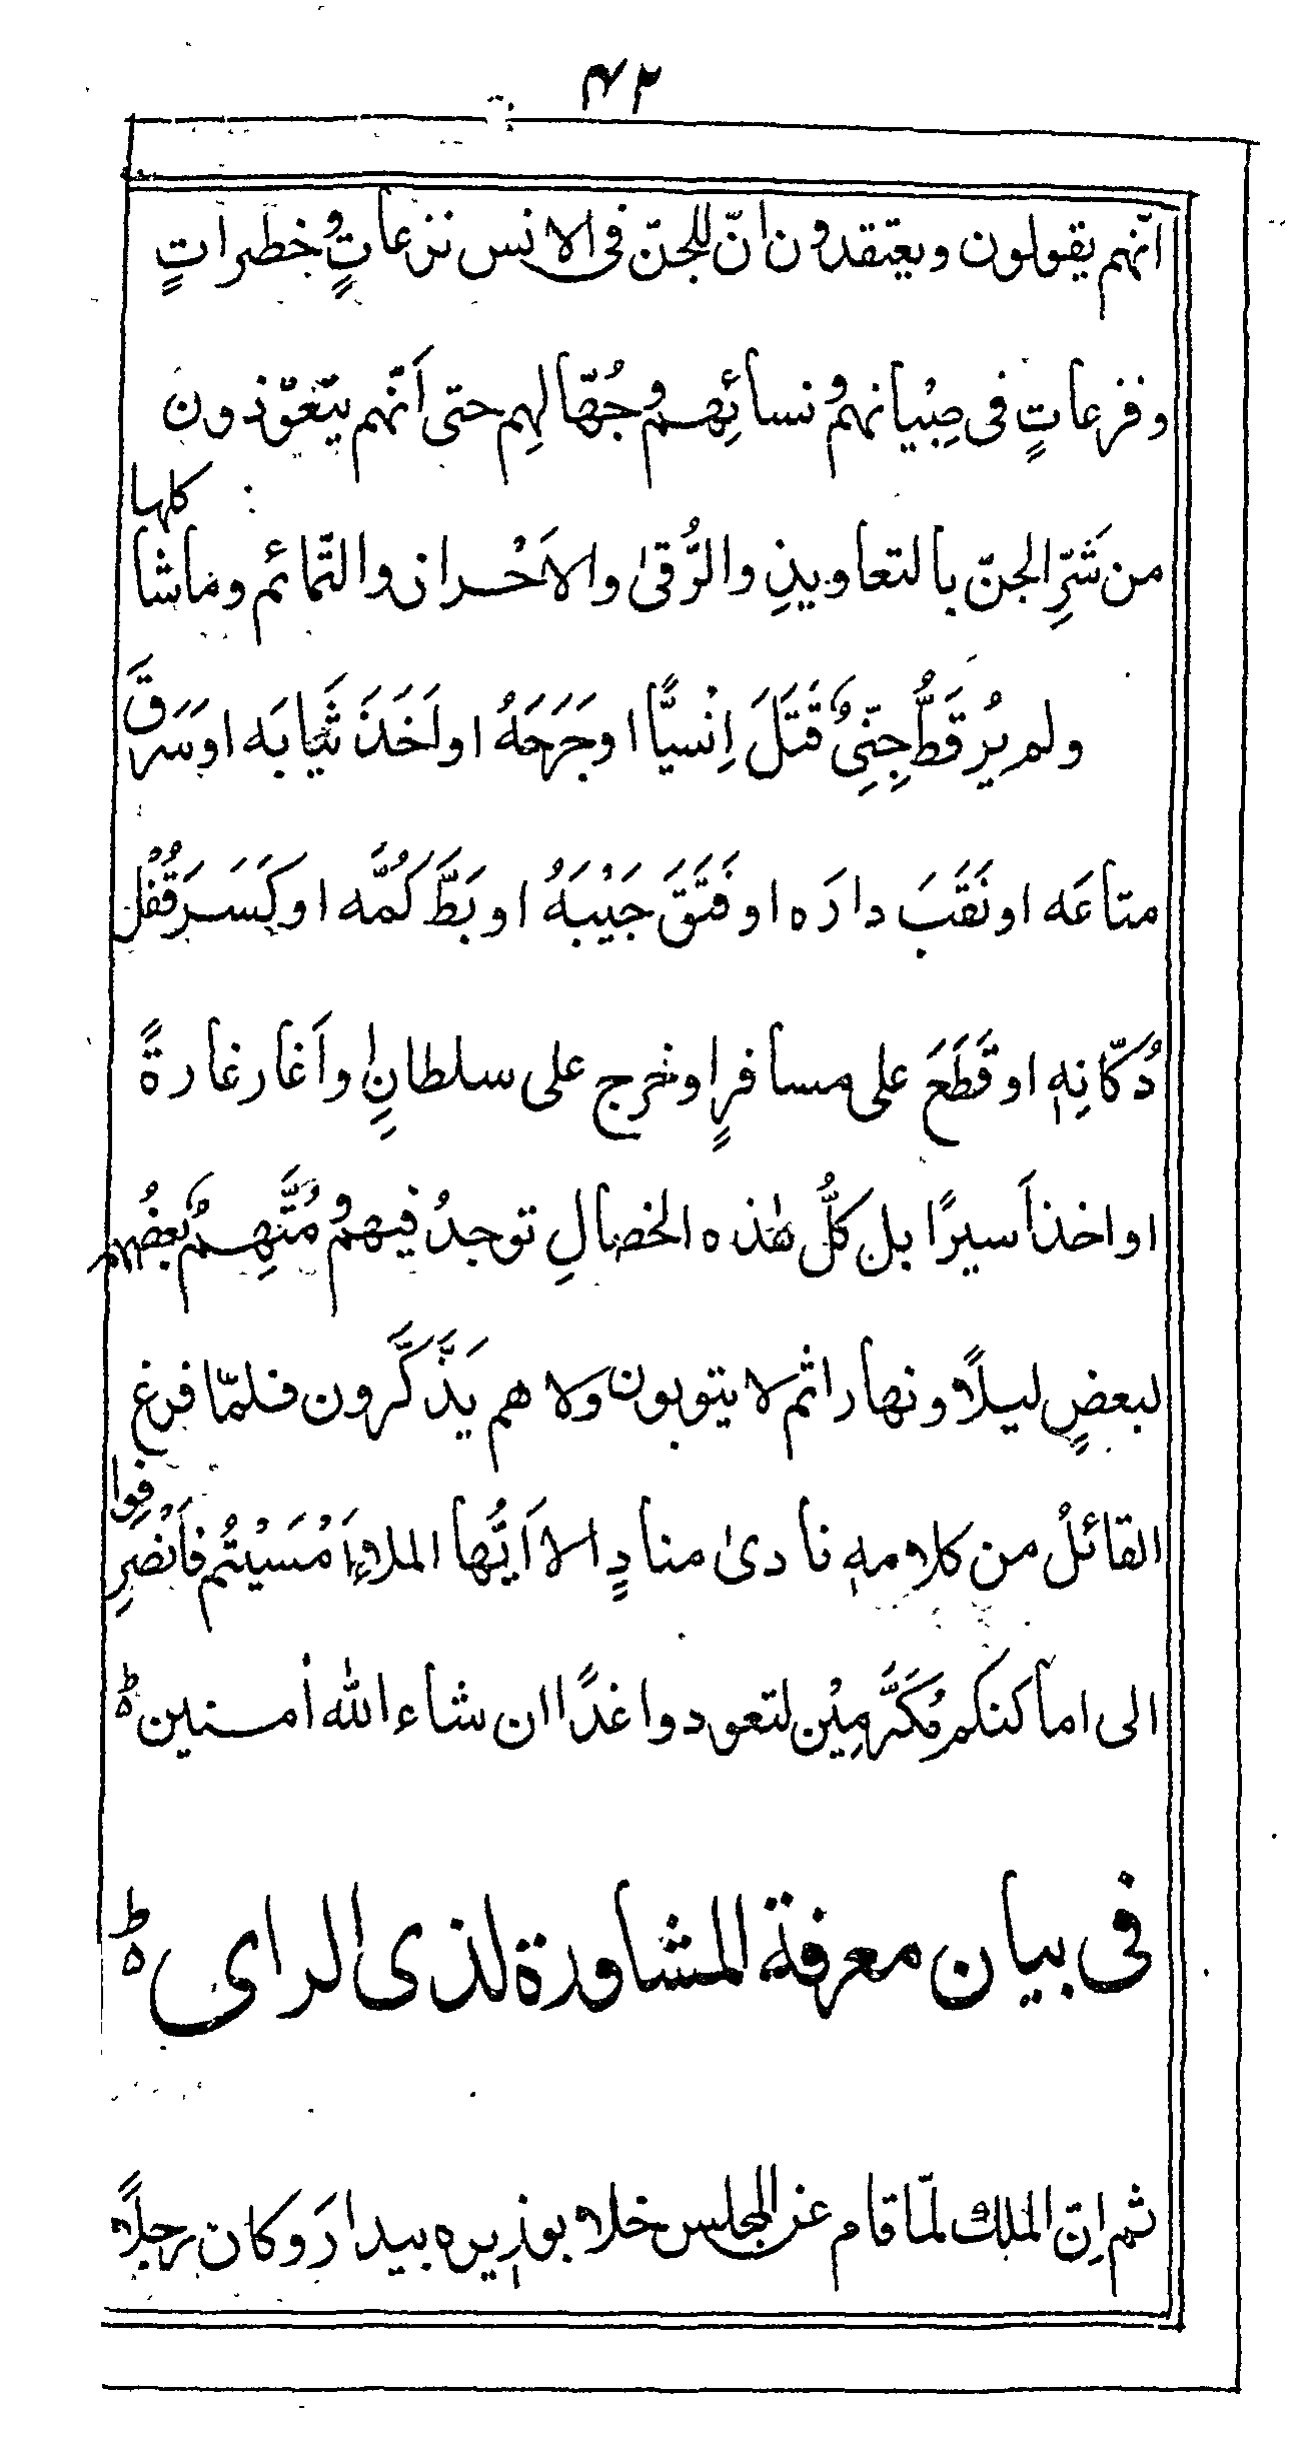 ۴۲
انّهم يقولون ويعتقدون انّ للجنّ فى الانس نزعاتٍ وخطراتٍ
وفزعاتٍ فى صِبْيانهم ونسائِهم وجُهّالهِم حتى اَنّهم يتّعوّذون
من شَرِّ الجنّ بالتعاويذِ والرُّقىٰ والاَحْراز والتّمائم وماشاكلها
ولم يُر قطُّ جِنّىٌ قَتَلَ اِنْسيًّا اوجَرَحَهُ اولَخَذَ ثَيابَه اوسَرَقَ
متاعَه اونَقَبَ دارَه اوفَتَقَ جَيْبَهُ اوبَطَّ كُمَّه اوكَسَرَ قُفْلَ
دُكّانِهٖ اوقَطَعَ على مسافرٍ اوخرج على سلطانٍ اواَغار غارةً
اواخذ اَسيرًا بل كلُّ هٰذه الخصالِ توجدُ فيهم ومُتَّهِمٌ بعضُهم
لبعضٍ ليلًا ونهارا ثم لا يتوبون ولا هم يَذَّكَّرون فلمّا فرغ
القائلُ من كلامهٖ نادىٰ منادٍ الا اَيُّها الملاءِ اَمْسَيْتُم فاَنْصَرِفوا
الى اماكنكم مُكَرَّمِيْن لتعودوا غدًا ان شاء الله اٰمنين ؕہ
فى بيان معرفة المشاورة لذى الراى ؕہ
ثم اِنّ الملك لمّا قام عن المجلس خلا بوزيره بيدار وكان رجلًا